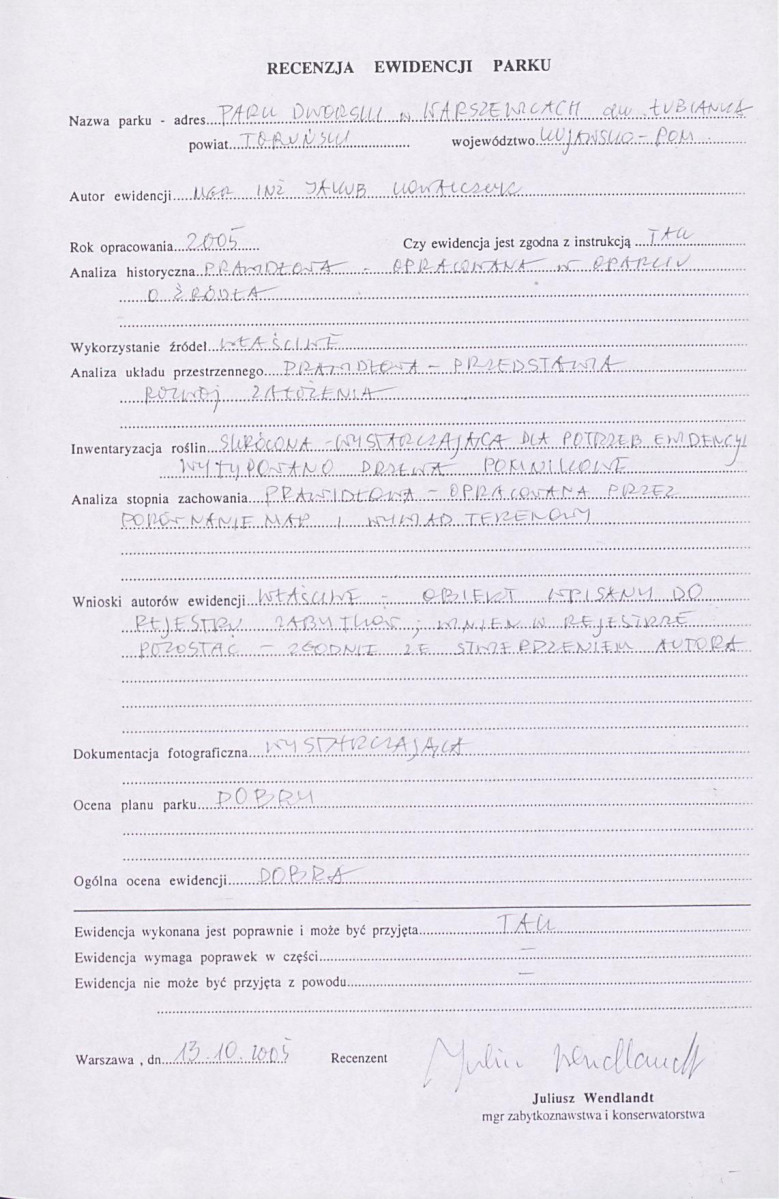 RECENZJA EWIDENCJI PARKU
Nazwa parku - adres...PARK DWORSKI w WARSZEWICACH gm. ŁUBIANKA
powiat...TORUŃSKI województwo.KUJAWSKO-POM.
Autor ewidencji....MGR INŻ JAKUB KOWALCZYK
Rok opracowania...2005 Czy ewidencja jest zgodna z instrukcją ...TAK
Analiza historyczna.PRAWIDŁOWA - OPRACOWANA w OPARCIU
O ŹRÓDŁA
Wykorzystanie źródeł..WŁAŚCIWE
Analiza układu przestrzennego....PRAWIDŁOWA - PRZEDSTAWIA
ROZWÓJ ZAŁOŻENIA
Inwentaryzacja roślin..SKRÓCONA - WYSTARCZAJĄCA DLA POTRZEB EWIDENCJI
WYTYPOWANO DRZEWA POMNIKOWE
Analiza stopnia zachowania...PRAWIDŁOWA - OPRACOWANA PRZEZ
PORÓWNANIE MAP I WYWIAD TERENOWY
Wnioski autorów ewidencji..WŁAŚCIWE - OBIEKT WPISANY DO
REJESTRU ZABYTKÓW; WINIEN W REJESTRZE
POZOSTAĆ - ZGODNIE ZE STWIERDZENIEM AUTORA
Dokumentacja fotograficzna...WYSTARCZAJĄCA
Ocena planu parku....DOBRY
Ogólna ocena ewidencji......DOBRA
Ewidencja wykonana jest poprawnie i może być przyjęta......TAK
Ewidencja wymaga poprawek w części......—
Ewidencja nie może być przyjęta z powodu......—
Warszawa , dn...13.10.2005 Recenzent Juliusz Wendlandt
Juliusz Wendlandt
mgr zabytkoznawstwa i konserwatorstwa